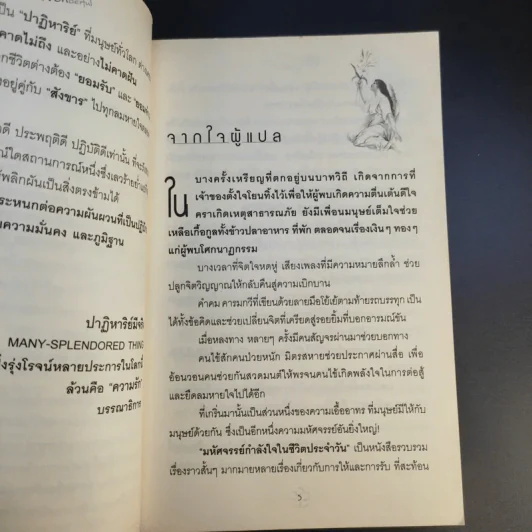 เป็น "ปาฏิหาริย์" ที่มนุษย์ทั่วโลก
คาดไม่ถึง และอย่างไม่คาดฝัน
กชีวิตต่างต้อง "ยอมรับ" และ
อยู่คู่กับ "สังขาร" ไปทุกลมหายใจ
ดี ประพฤติดี ปฏิบัติดีเท่านั้น ที่จะ
ณ์ใดสถานการณ์หนึ่งซึ่งเลวร้าย
พลิกผันเป็นสิ่งตรงข้ามได้
ระหนกต่อความผันผวนที่เป็น
ความมั่นคง และภูมิฐาน
ปาฏิหาริย์มีจริง
MANY-SPLENDORED THING
รุ่งโรจน์หลายประการในโลกนี้
ล้วนคือ "ความรัก"
บรรณาธิการ
จากใจผู้แปล
ในบางครั้งเหรียญที่ตกอยู่บนบาทวิถี เกิดจากการที่
เจ้าของตั้งใจโยนทิ้งไว้เพื่อให้ผู้พบเกิดความตื่นเต้นดีใจ
คราเกิดเหตุสาธารณภัย ยังมีเพื่อนมนุษย์เต็มใจช่วย
เหลือเกื้อกูลทั้งข้าวปลาอาหาร ที่พัก ตลอดจนเรื่องเงินๆ ทองๆ
แก่ผู้พบโศกนาฏกรรม
บางเวลาที่จิตใจหดหู่ เสียงเพลงที่มีความหมายลึกล้ำ ช่วย
ปลุกจิตวิญญาณให้กลับคืนสู่ความเบิกบาน
คำคม คารมกวีที่เขียนด้วยลายมือโย้เย้ตามท้ายรถบรรทุก เป็น
ได้ทั้งข้อคิดและช่วยเปลี่ยนจิตที่เครียดสู่รอยยิ้มที่บอกอารมณ์ขัน
เมื่อหลงทาง หลายๆ ครั้งมีคนสัญจรผ่านมาช่วยบอกทาง
คนไข้สักคนป่วยหนัก มิตรสหายช่วยประกาศผ่านสื่อ เพื่อ
อ้อนวอนคนช่วยกันสวดมนต์ให้พรจนคนไข้เกิดพลังใจในการต่อสู้
และยืดลมหายใจไปได้อีก
ที่เกริ่นมานั้นเป็นส่วนหนึ่งของความเอื้ออาทร ที่มนุษย์มีให้กับ
มนุษย์ด้วยกัน ซึ่งเป็นอีกหนึ่งความมหัศจรรย์อันยิ่งใหญ่!
"มหัศจรรย์กำลังใจในชีวิตประจำวัน" เป็นหนังสือรวบรวม
เรื่องราวสั้นๆ มากมายหลายเรื่องเกี่ยวกับการให้และการรับ ที่สะท้อน